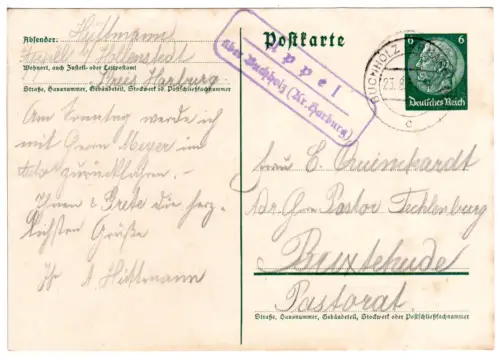 Absender: Hüttmann
Appel b. Hollenstedt
Wohnort, auch Zustell- oder Leitpostamt
Kreis Harburg
Straße, Hausnummer, Gebäudeteil, Stockwerk od. Postschließfachnummer
Am Sonntag werde ich
mit Herrn Meyer im
Auto zurückfahren. –
Ihnen & Grete die herz-
lichsten Grüße
Ihr A Hüttmann
Appel
über Buchholz (Kr. Harburg)
Postkarte
BUCHHOLZ
c
6 6
Deutsches Reich
Herrn E. Quimkardt
Adr. Herrn Pastor Tecklenburg
Buxtehude
Pastorat.
Straße, Hausnummer, Gebäudeteil, Stockwerk oder Postschließfachnummer